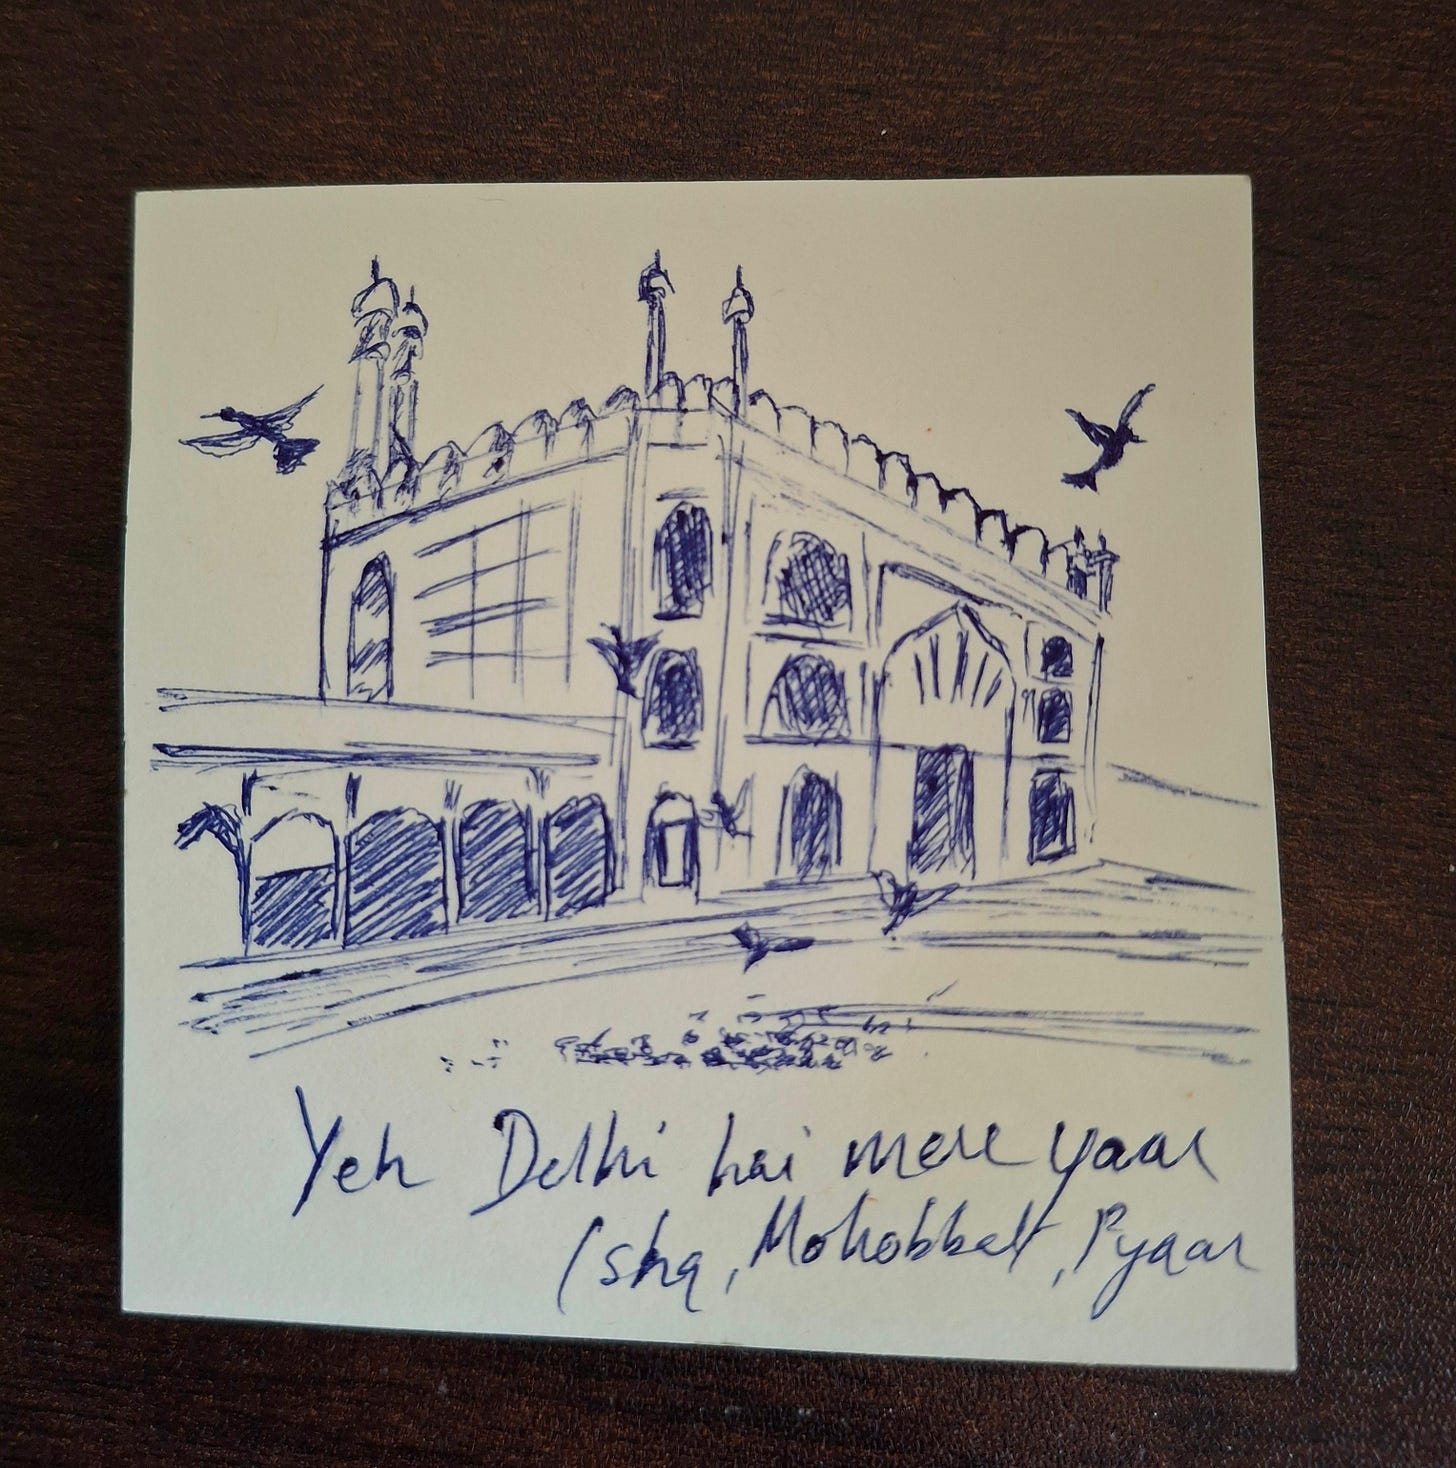 Yeh Delhi hai mere yaar
Ishq, Mohobbat, Pyaar